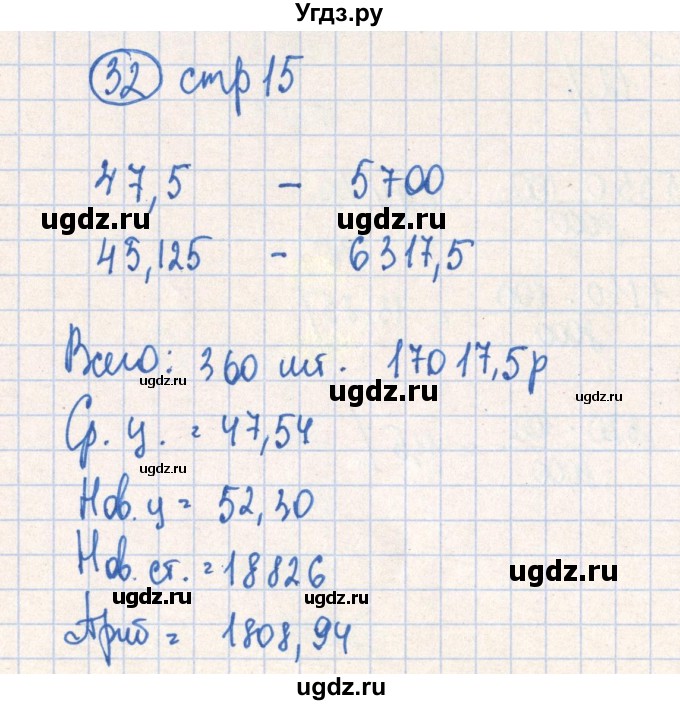 Угдз.ру
32 стр 15
47,5 - 5700
ugdz.ru ugdz.ru
45,125 - 6317,5
Всего: 360 шт. 17017,5р
ugdz.ru ugdz.ru ugdz.ru
Ср. ц. = 47,54
ugdz.ru
Нов. ц = 52,30
Нов. ст. = 18826
ugdz.ru
ugdz.ru ugdz.ru
= 1808,94
ugdz.ru